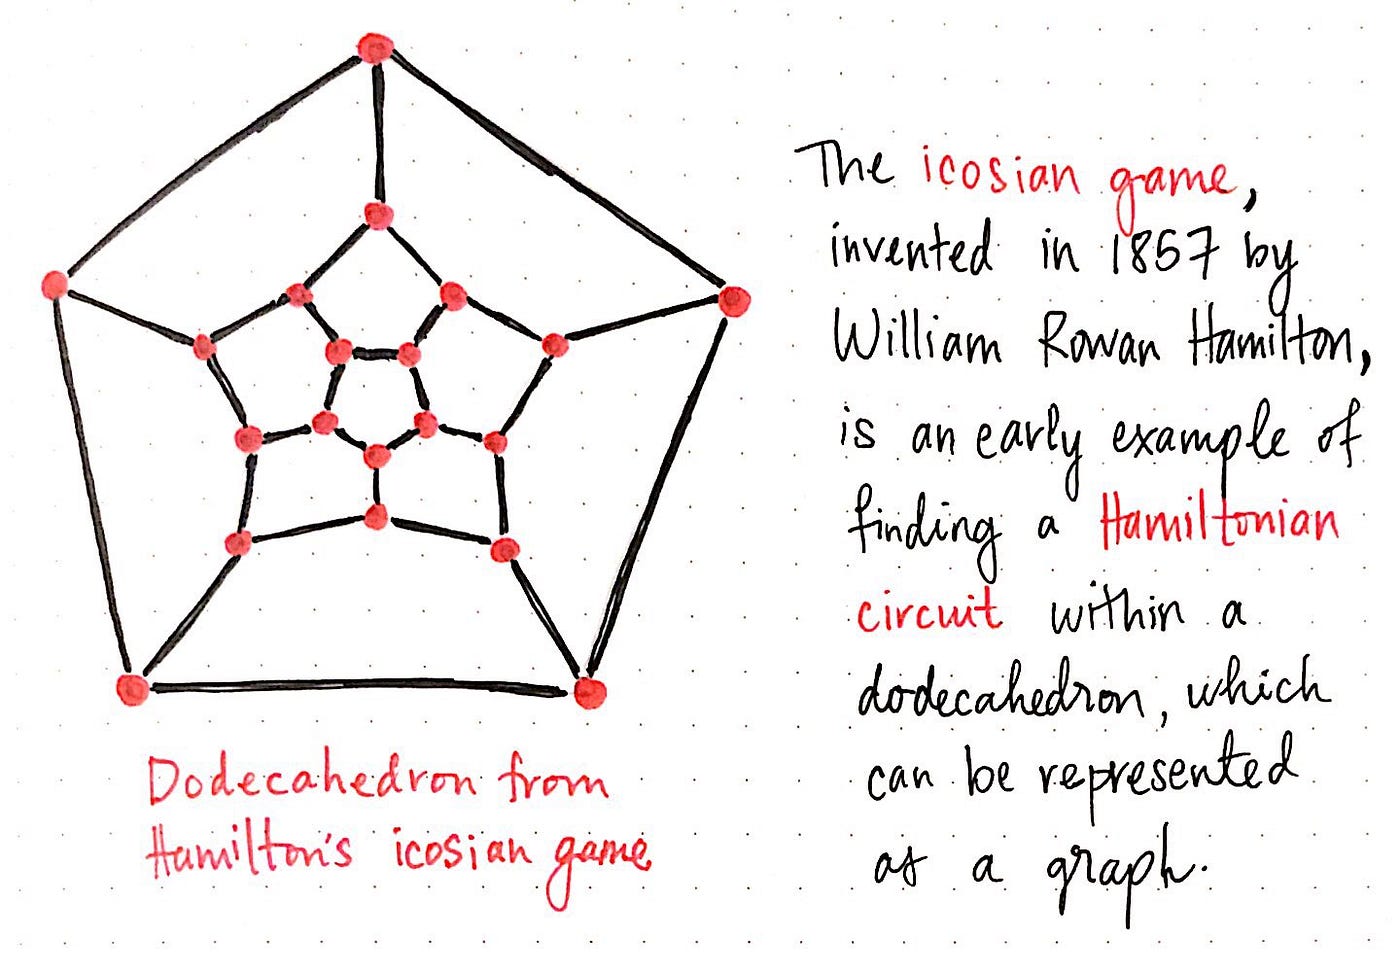 The icosian game,
invented in 1857 by
William Rowan Hamilton,
is an early example of
finding a Hamiltonian
circuit within a
dodecahedron, which
can be represented
as a graph.
Dodecahedron from
Hamilton's icosian game